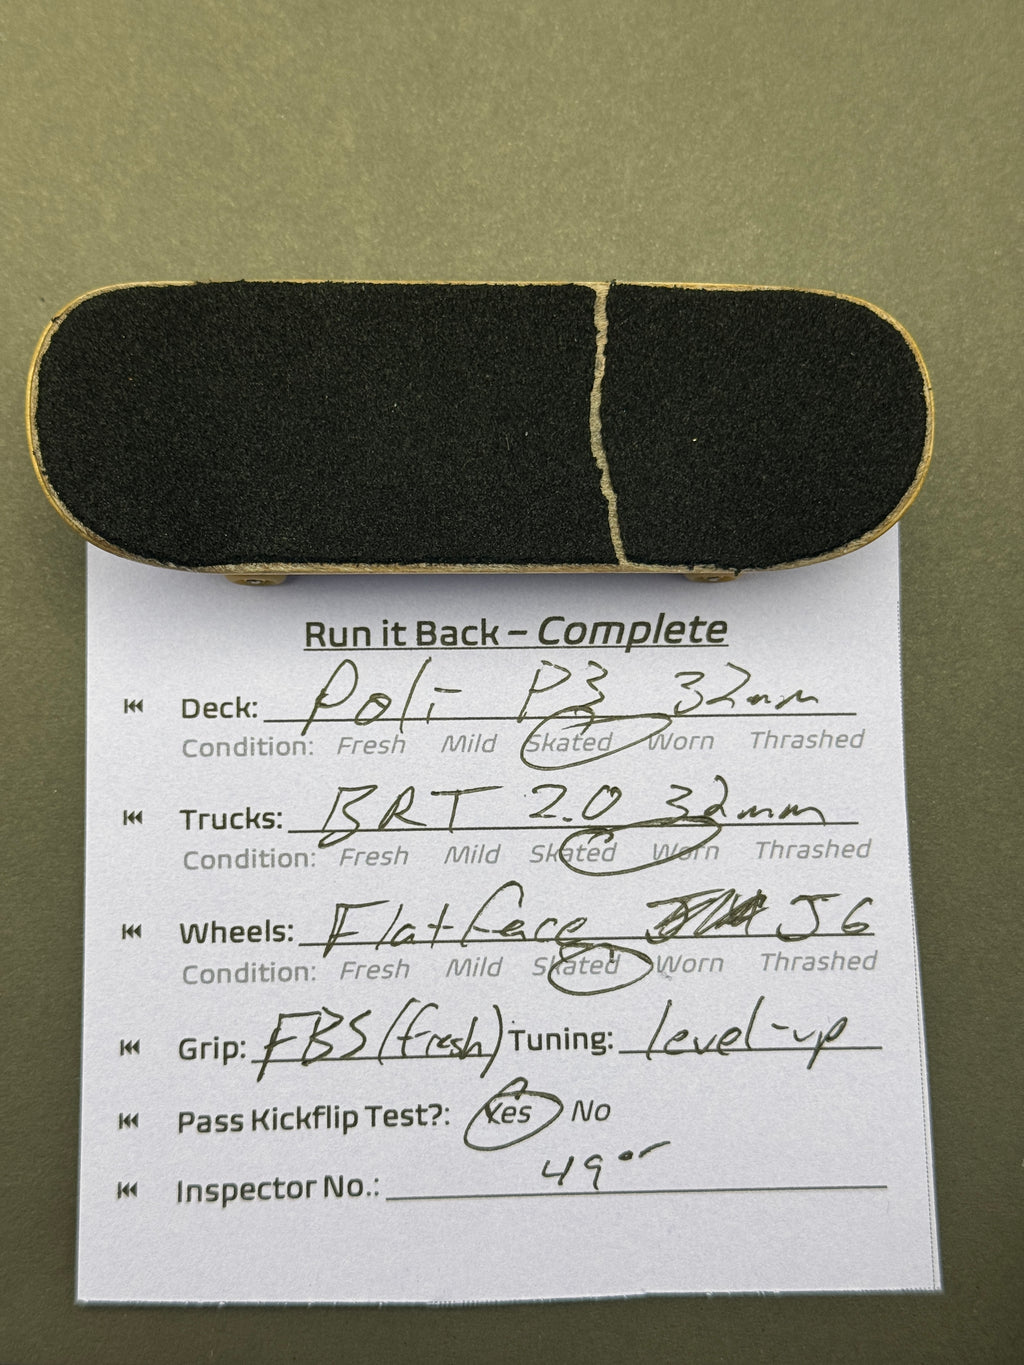 Run it Back – Complete
Deck: Poli- P3 32mm
Condition: Fresh Mild Skated Worn Thrashed
Trucks: BRT 2.0 32mm
Condition: Fresh Mild Skated Worn Thrashed
Wheels: Flatface J6
Condition: Fresh Mild Skated Worn Thrashed
Grip: FBS (fresh) Tuning: level-up
Pass Kickflip Test?: Yes No
Inspector No.: 49